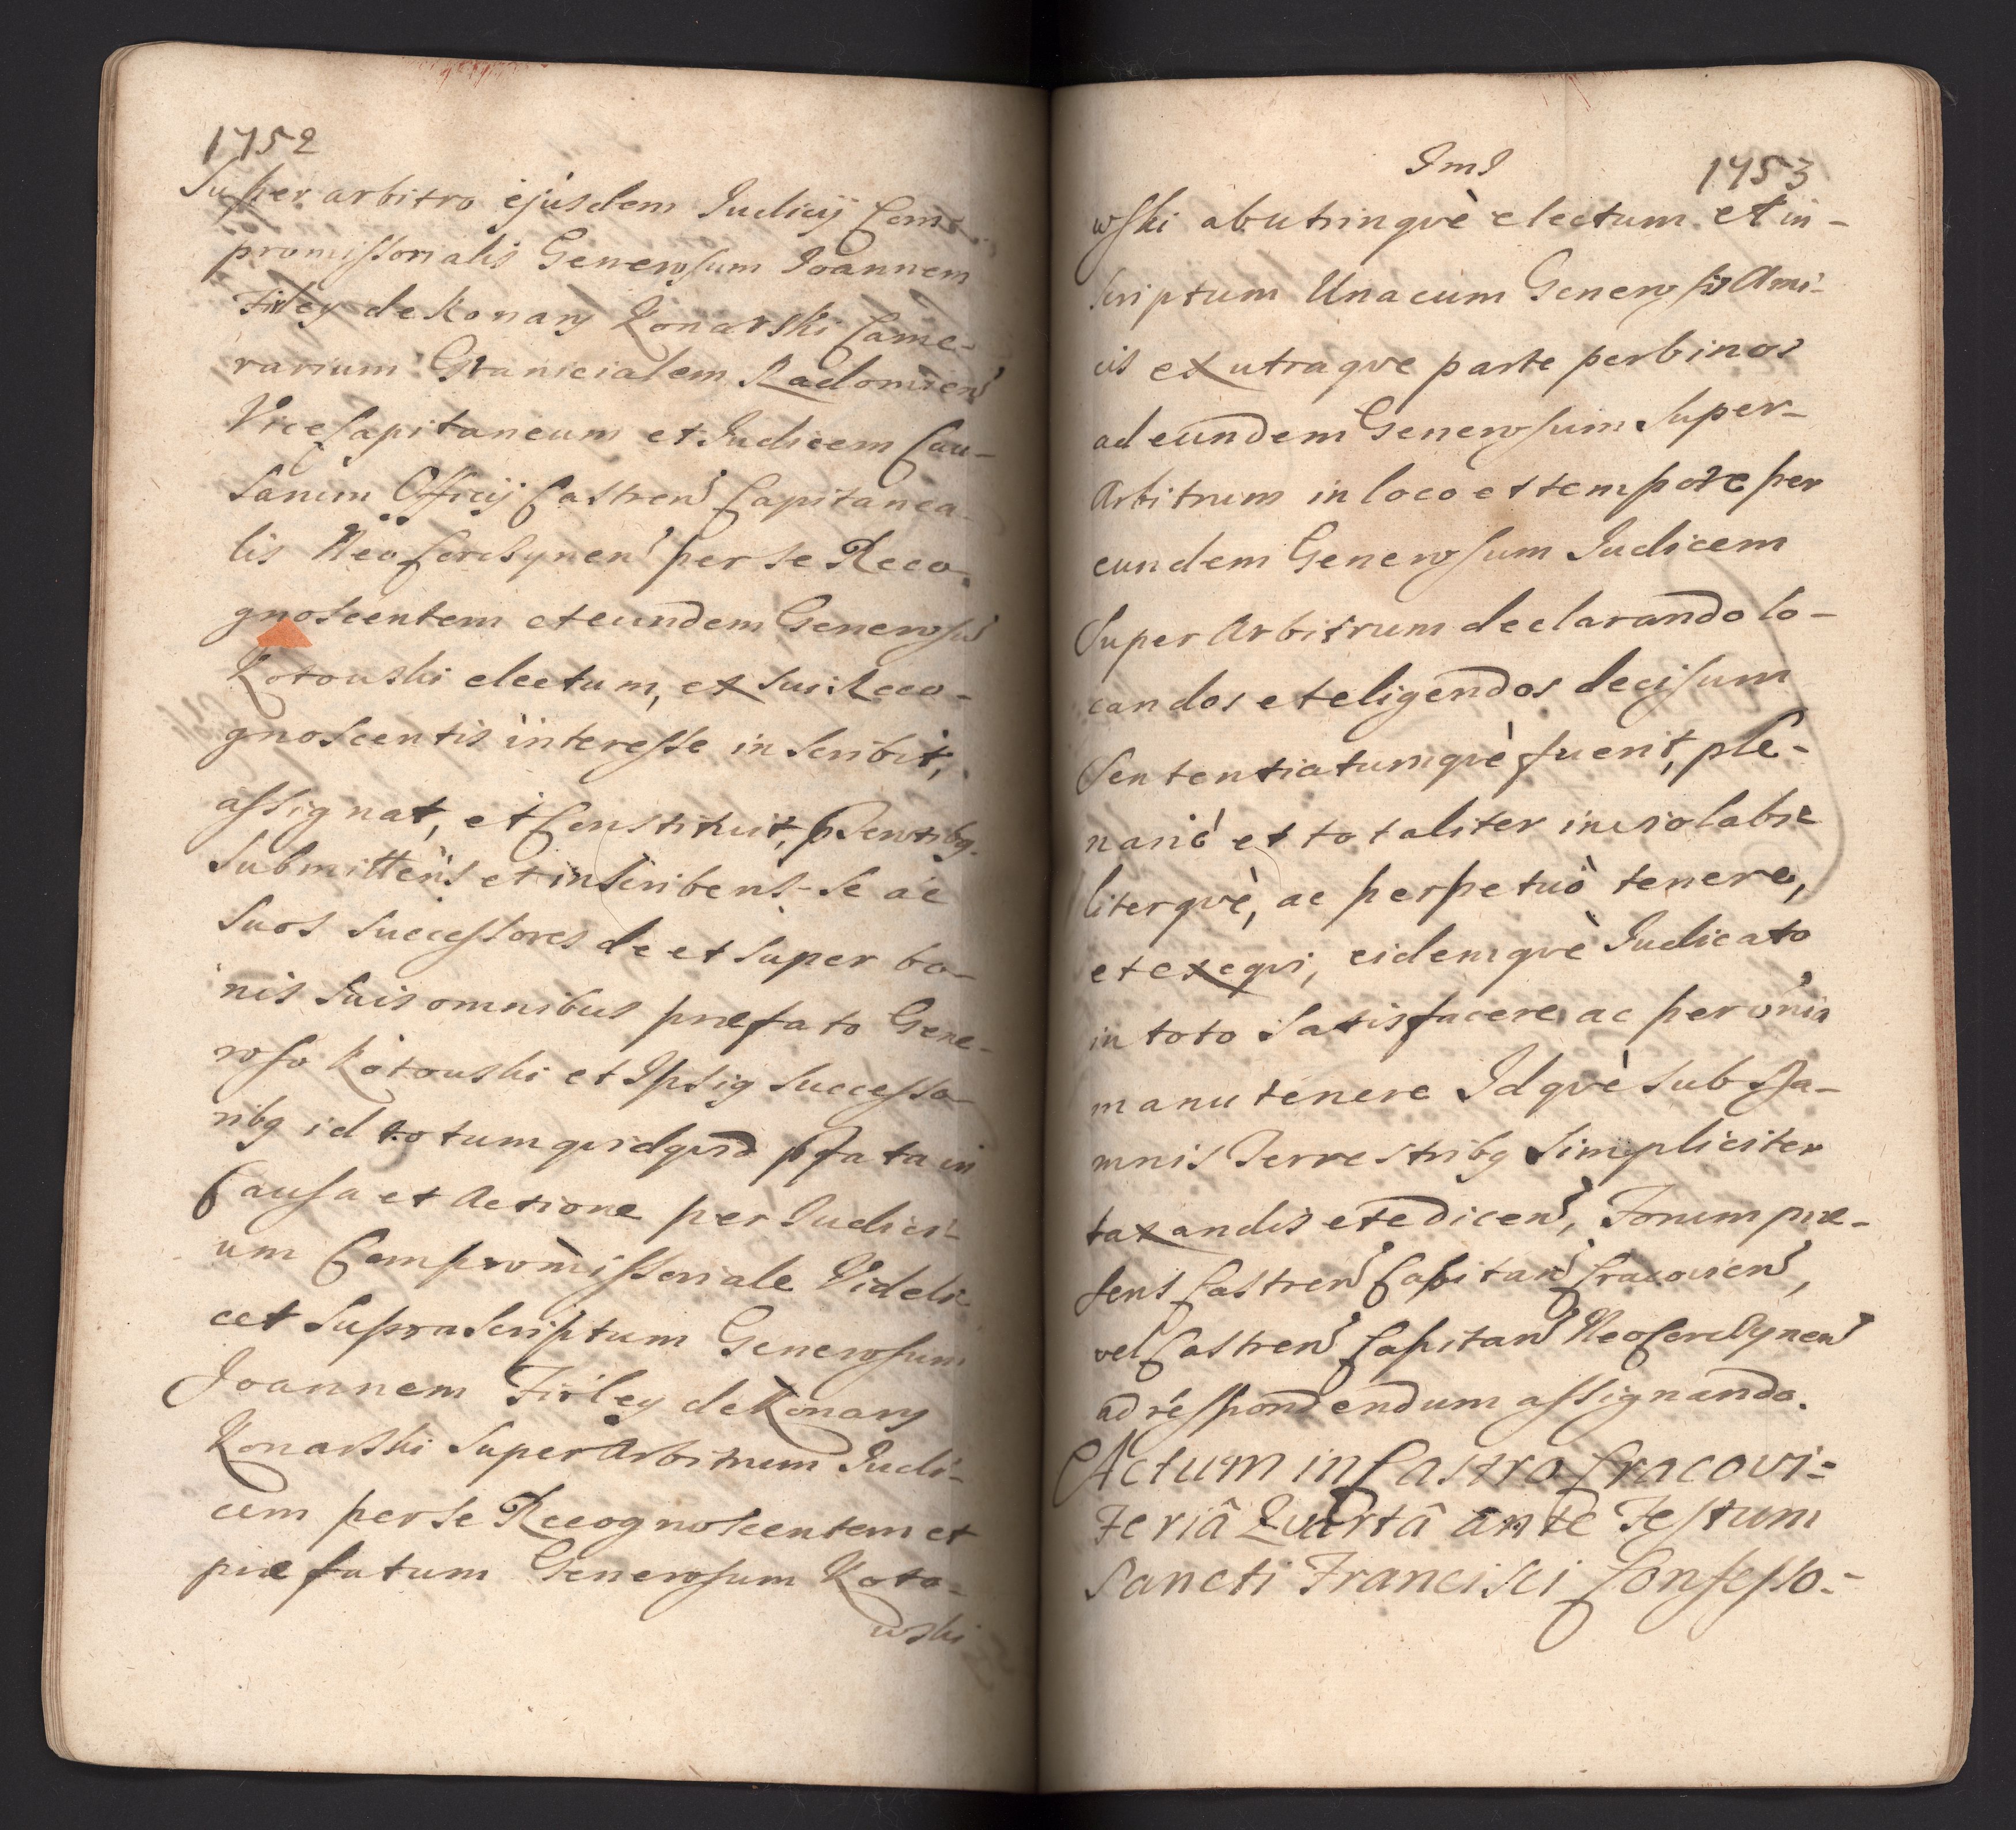 1752
Super arbitro ejusdem Iudicij Com-
promissorialis Generosum Joannem
Firley de Konary Konarski Came-
rarium Granicialem Radomien
ViceCapitaneum et Iudicem Cau-
sarum Officij Castren Capitanea-
lis NeoCorcsynen per se Reco-
gnoscentem et eundem Generosū
Kotouski electum, ex sui Reco-
gnoscentis interesse inscribit,
assignat, et Constituit, pñsentibg
Submittens et inscribens se ac
Suos Successores de et super bo-
nis suis omnibus præfato Gene-
roso Kotouski et Ipsig Successo-
ribg id totum qvidqvid pfata in
Causa et Actione per Iudici-
um Compromissoriale Videli-
cet Suprascriptum Generosum
Joannem Firley de Konary
Konarski SuperArbitrum Iudi-
cem per se Recognoscentem et
præfatum Generosum Koto-
wski
ImI 1753
wski ab utrinqvè electum et in-
scriptum Unacum Generosis Ami-
cis ex utraqve parte per binos
ad eundem Generosum Super-
Arbitrum in loco et tempore per
eundem Generosum Iudicem
Super Arbitrum declarando lo-
candos et eligendos decisum
Sententiatumqvè fuerit, ple-
nariè et totaliter inviolabi-
literqvè, ac perpetuò tenere,
et exeqvi, eidemqvè Iudicato
in toto Satisfacere ac per oĩa
manutenere Idqvè sub Da-
mnis Terrestribg Simpliciter
taxandis et edicen, Forum præ-
sens Castren Capitan Cracovien,
vel Castren Capitan NeoCorcsynen
ad respondendum assignando.
Actum in Castro Cracovi=
Feriâ Qvartâ ante Festum
Sancti Francisci Confesso=